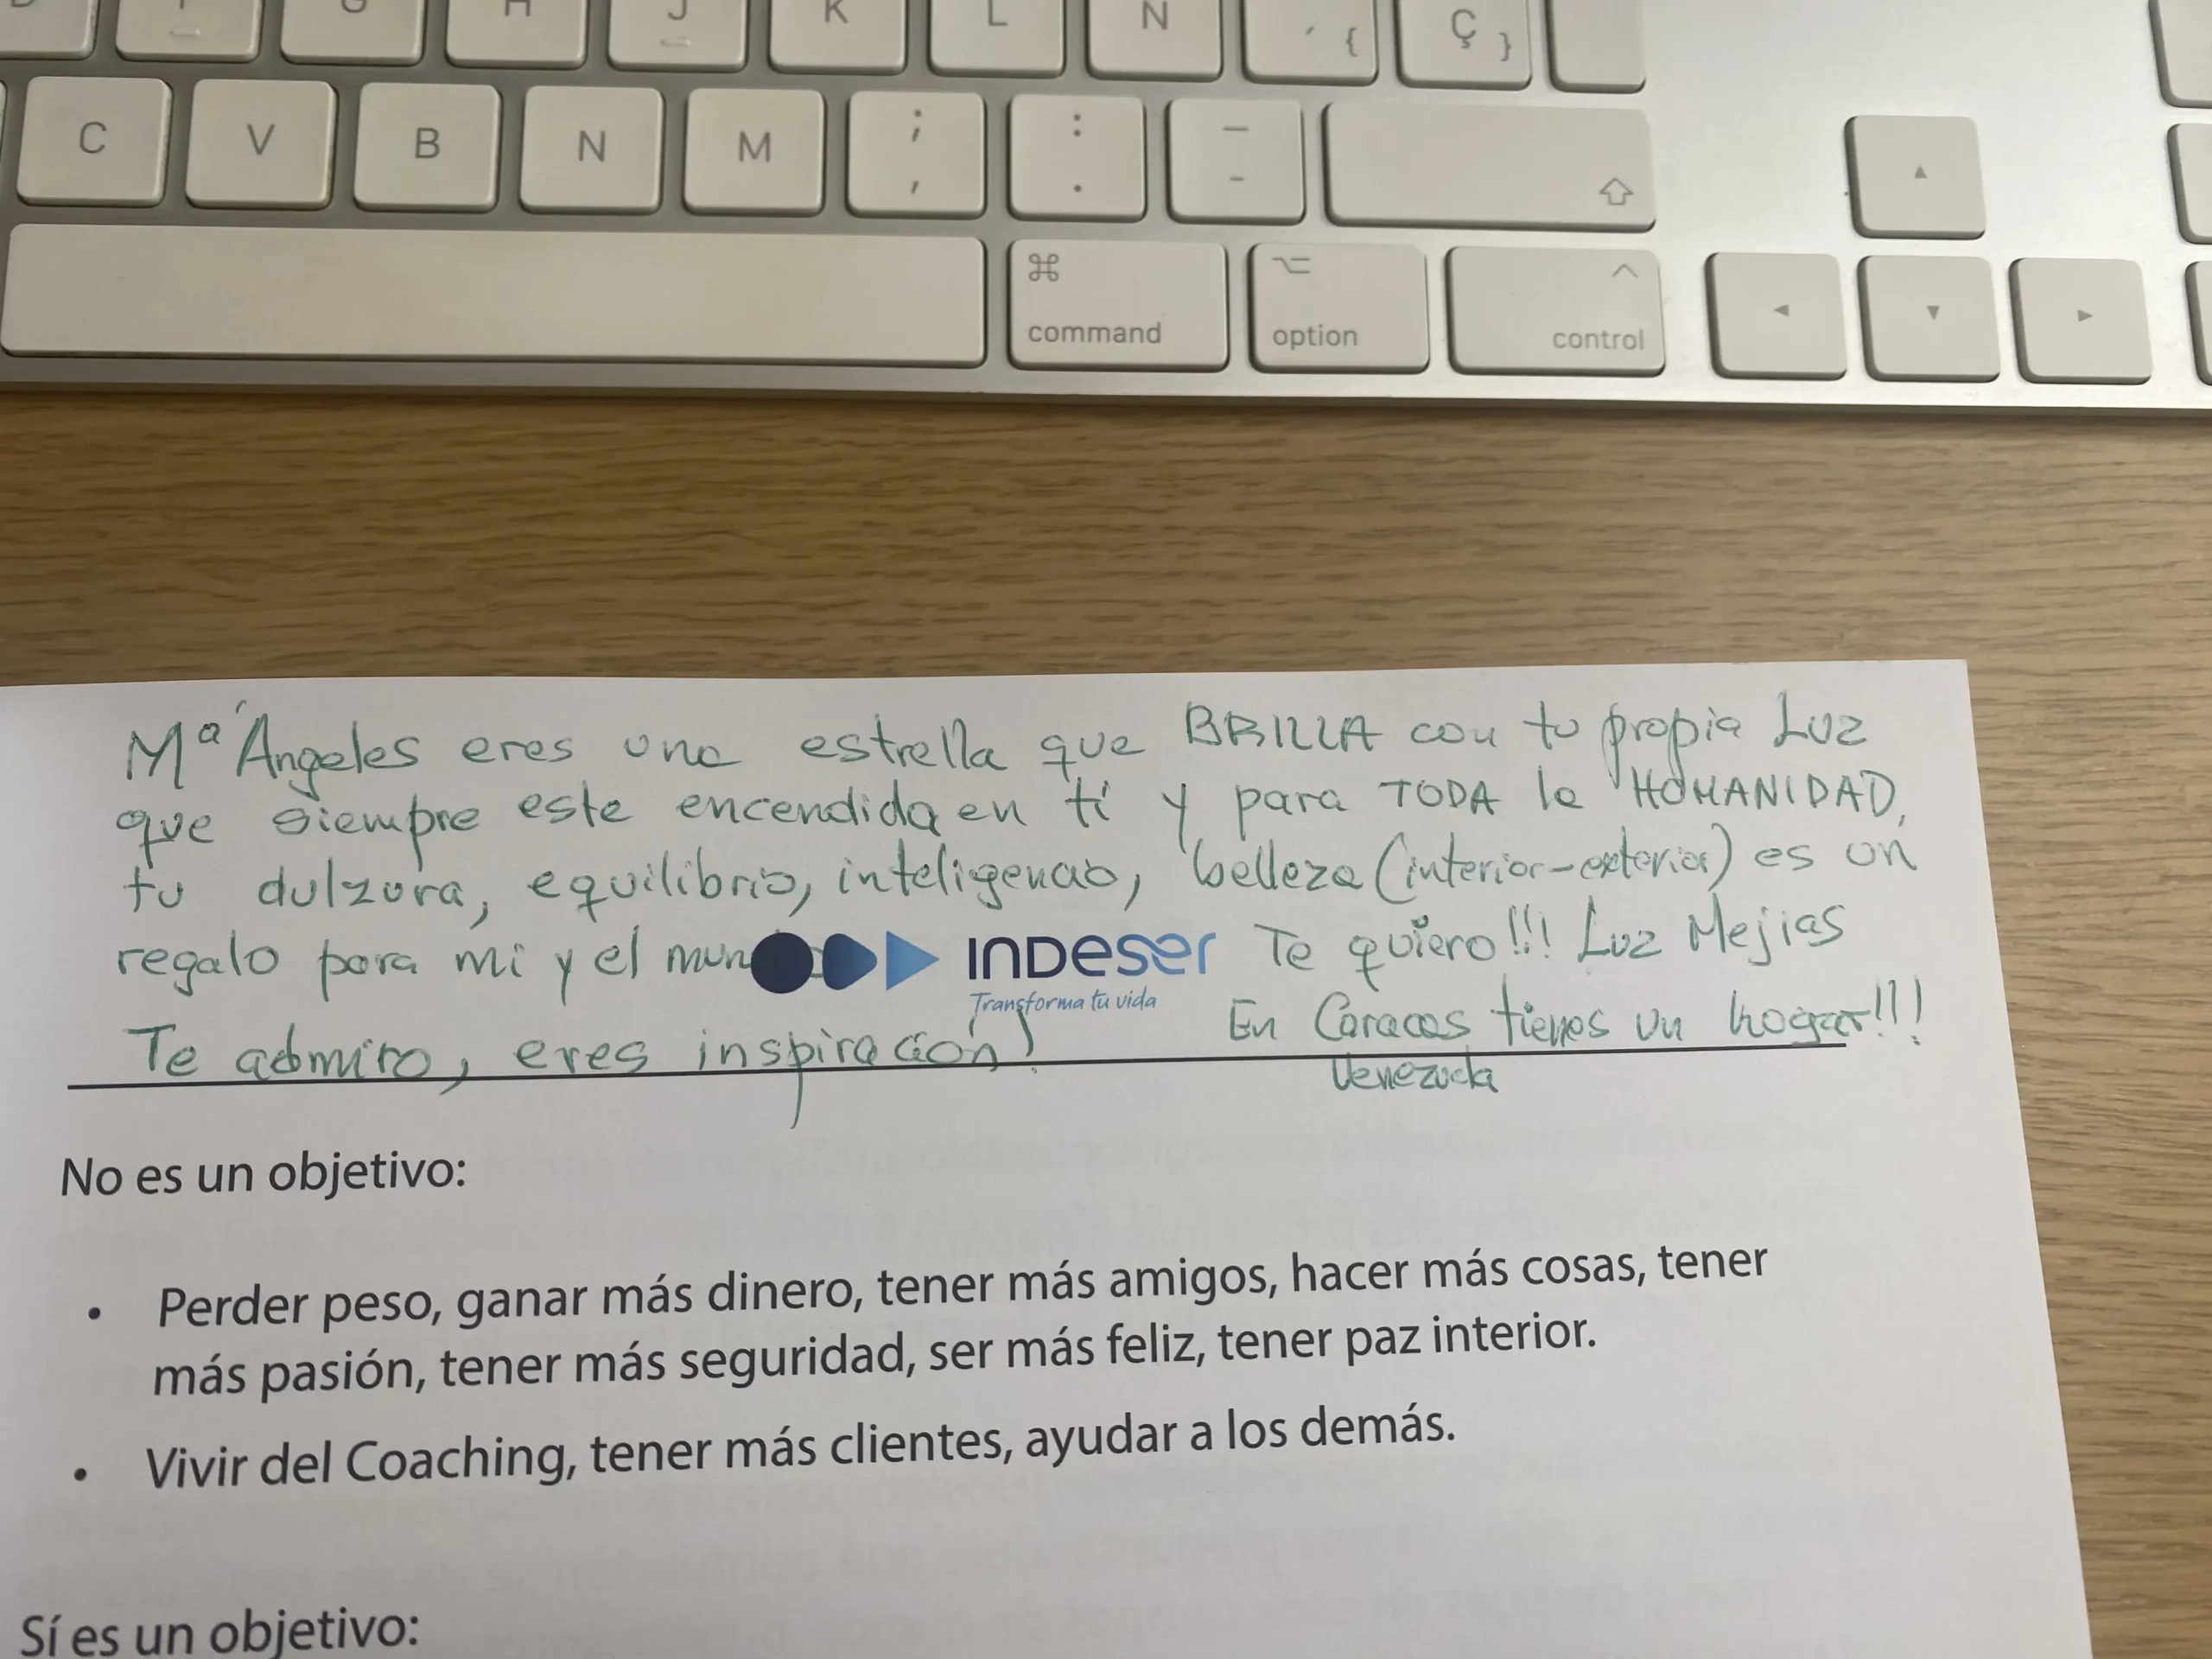 G H J K L Ñ ´ { Ç }
C V B N M ; , : . _ -
⌘ command ⌥ option ^ control
Mª Ángeles eres una estrella que BRILLA con tu propia Luz
que siempre este encendida en tí y para TODA la HUMANIDAD,
tu dulzura, equilibrio, inteligencia, belleza (interior-exterior) es un
regalo para mi y el INDESER Te quiero!!! Luz Mejias
Transforma tu vida
Te admiro, eres inspiración! En Caracas tienes un hogar!!!
Venezuela
No es un objetivo:
• Perder peso, ganar más dinero, tener más amigos, hacer más cosas, tener
más pasión, tener más seguridad, ser más feliz, tener paz interior.
• Vivir del Coaching, tener más clientes, ayudar a los demás.
Sí es un objetivo: